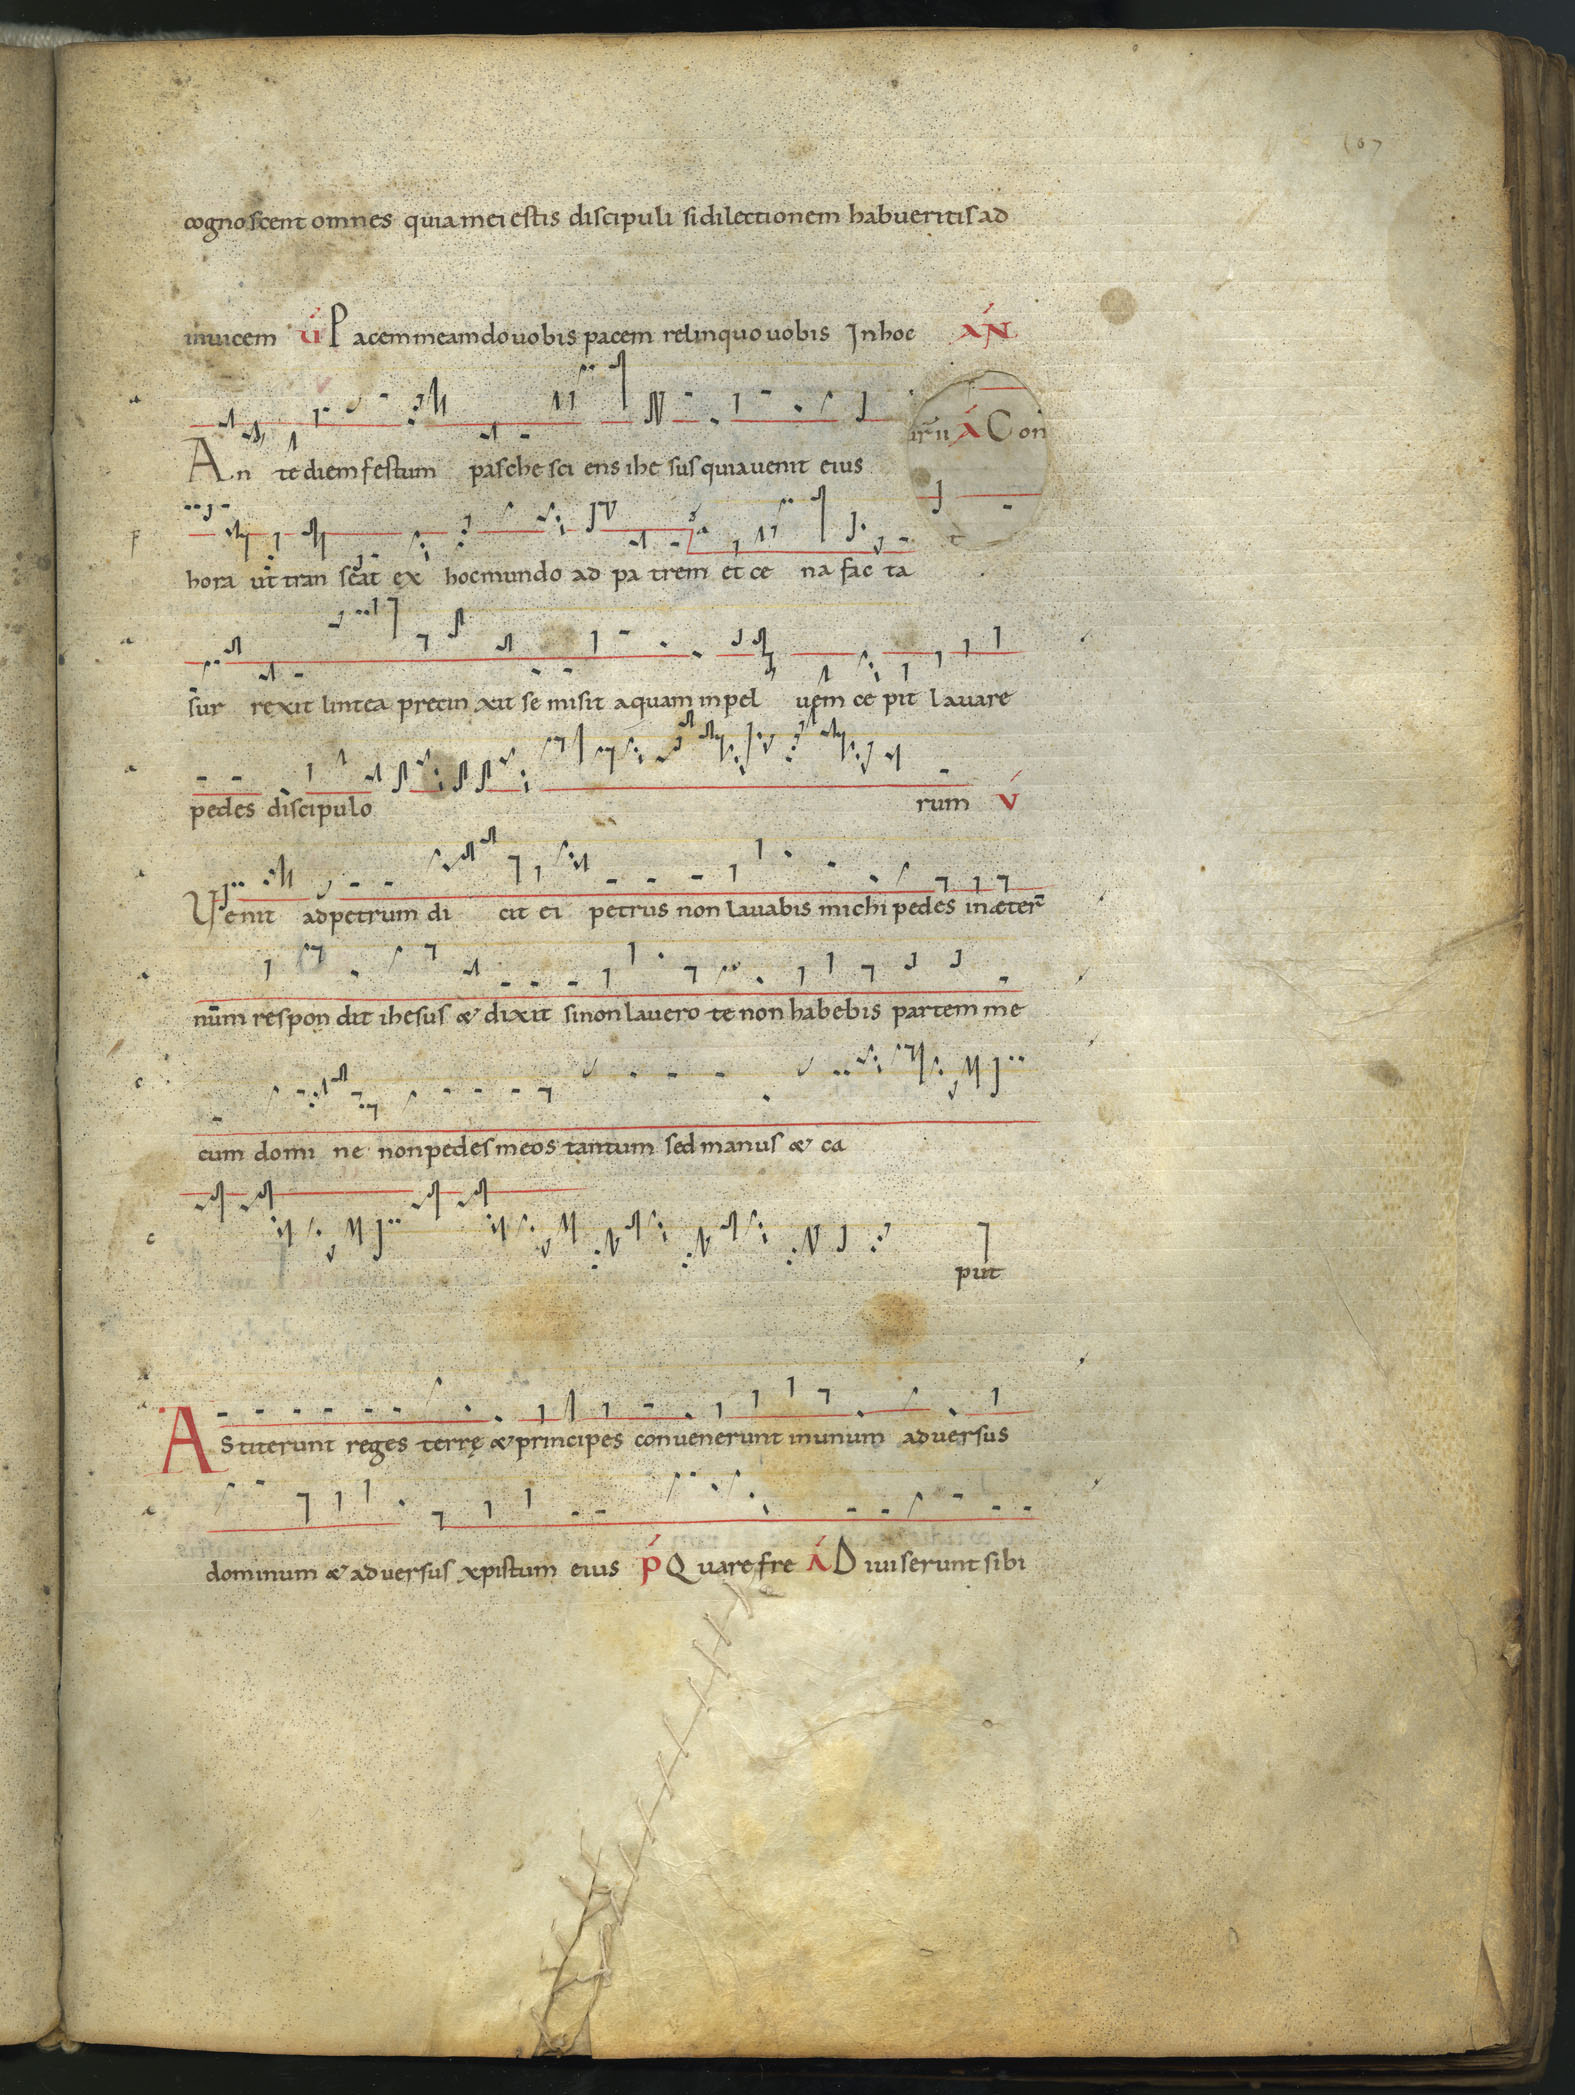 cognoscent omnes quia mei estis discipuli si dilectionem habueritis ad
invicem V Pacem meam do vobis pacem relinquo vobis In hoc AN
An te diem festum pasche sci ens ihe sus quia venit eius
hora ut tran seat ex hoc mundo ad pa trem et ce na fac ta
sur rexit lintea precin xit se misit aquam in pel vem ce pit lavare
pedes discipulo rum V
Venit ad petrum di cit ei petrus non lavabis michi pedes in æter
num respon dit ihesus & dixit si non lavero te non habebis partem me
cum domi ne non pedes meos tantum sed manus & ca
put
Astiterunt reges terrę & principes convenerunt in unum adversus
dominum & adversus xpistum eius P Quare fre A Diviserunt sibi